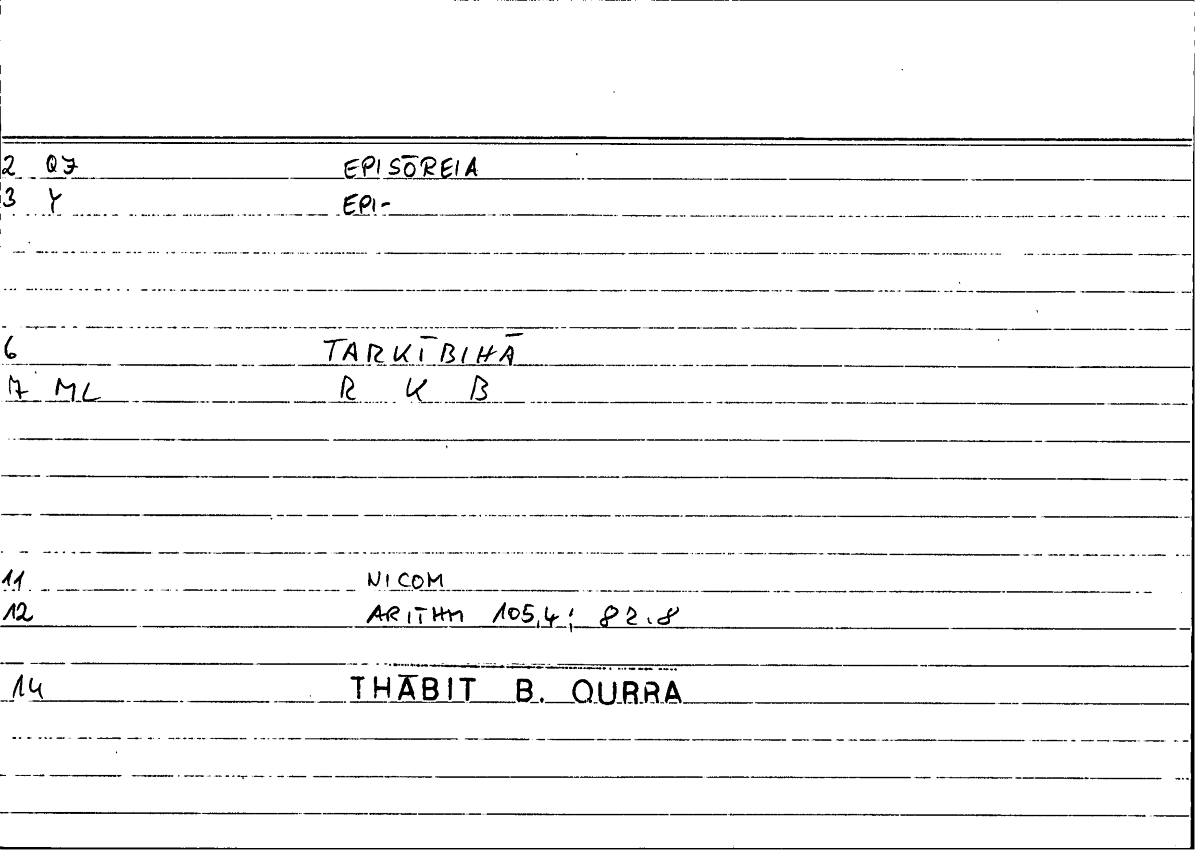 2 QJ EPISŌREIA
3 Y EPI-
6 TARKĪBIHĀ
7 ML R K B
11 NICOM
12 ARITHM 105,4; 82.8
14 THĀBIT B. QURRA